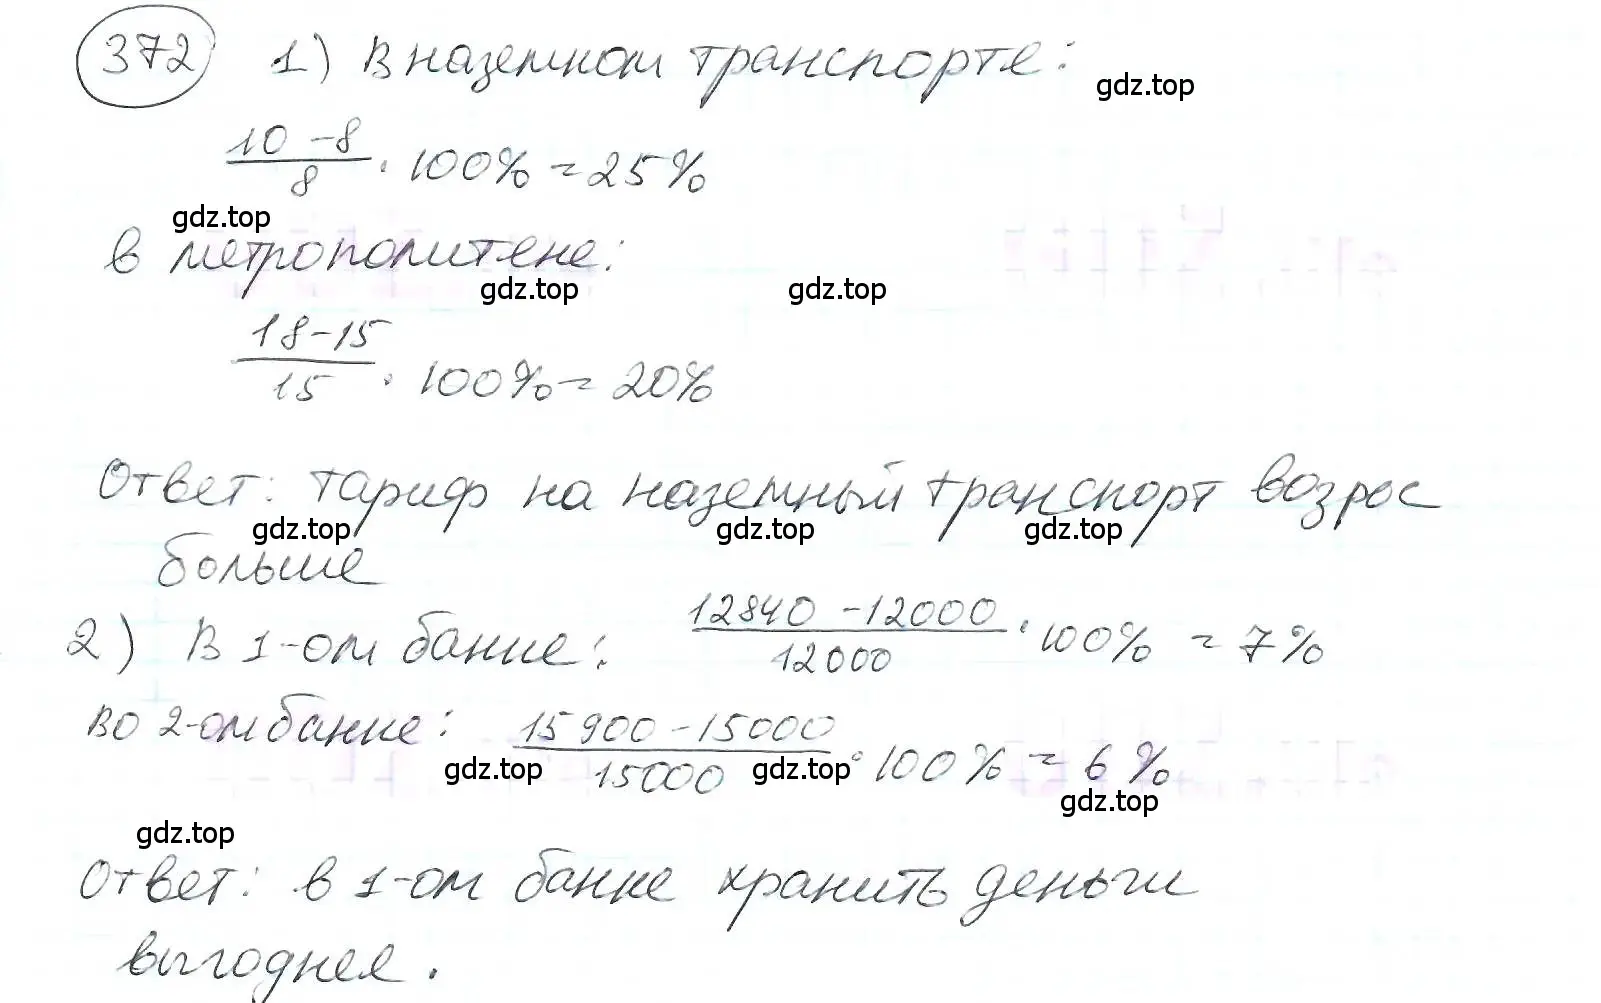 372 1) В наземном транспорте: gdz.top
10 - 8 / 8 · 100% = 25%
gdz.top
в метрополитене:
gdz.top gdz.top
18 - 15 / 15 · 100% = 20%
Ответ: тариф на наземный транспорт возрос
gdz.top gdz.top gdz.top
больше
2) В 1-ом банке: 12840 - 12000 / 12000 · 100% = 7%
Во 2-ом банке: 15900 - 15000 / 15000 · 100% = 6%
gdz.top gdz.top gdz.top
gdz.top
Ответ: в 1-ом банке хранить деньги
выгоднее.